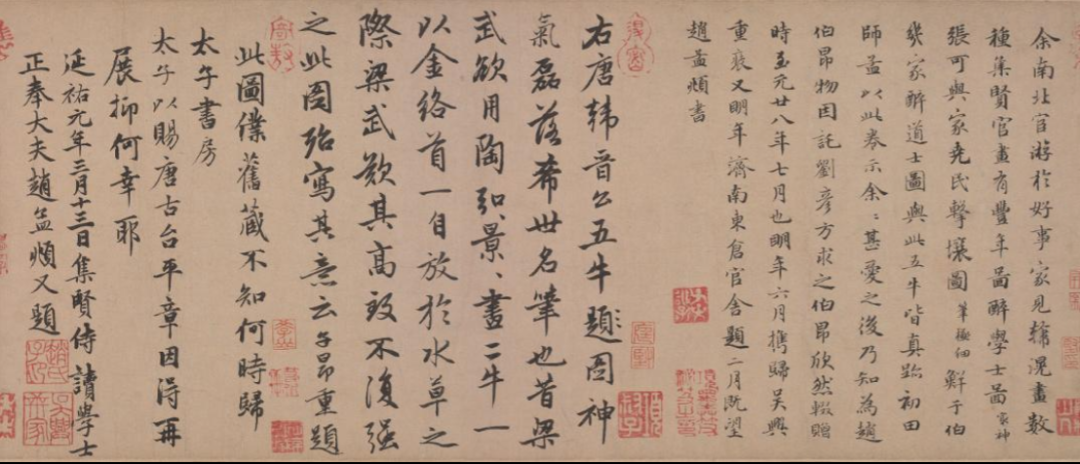 余南北宦游於好事家見韓滉畫數
種集賢官畫有豐年啚醉學士啚最神
張可與家堯民擊壤圖筆極細鮮于伯
幾家醉道士圖與此五牛皆真跡初田
師孟以此卷示余〻甚愛之後乃知為趙
伯昂物因託劉彥方求之伯昂欣然輟贈
時至元廿八年七月也明年六月攜歸吳興
重裝又明年濟南東倉官舍題二月既望
趙孟頫書
右唐韓晉公五牛題圖神
氣磊落希世名筆也昔梁
武欲用陶弘景〻畫二牛一
以金絡首一自放於水草之
際梁武歎其高致不復強
之此圖殆寫其意云子昂重題
此圖僕舊藏不知何時歸
太子書房
太子以賜唐古台平章因得再
展抑何幸耶
延祐元年三月十三日集賢侍讀學士
正奉大夫趙孟頫又題